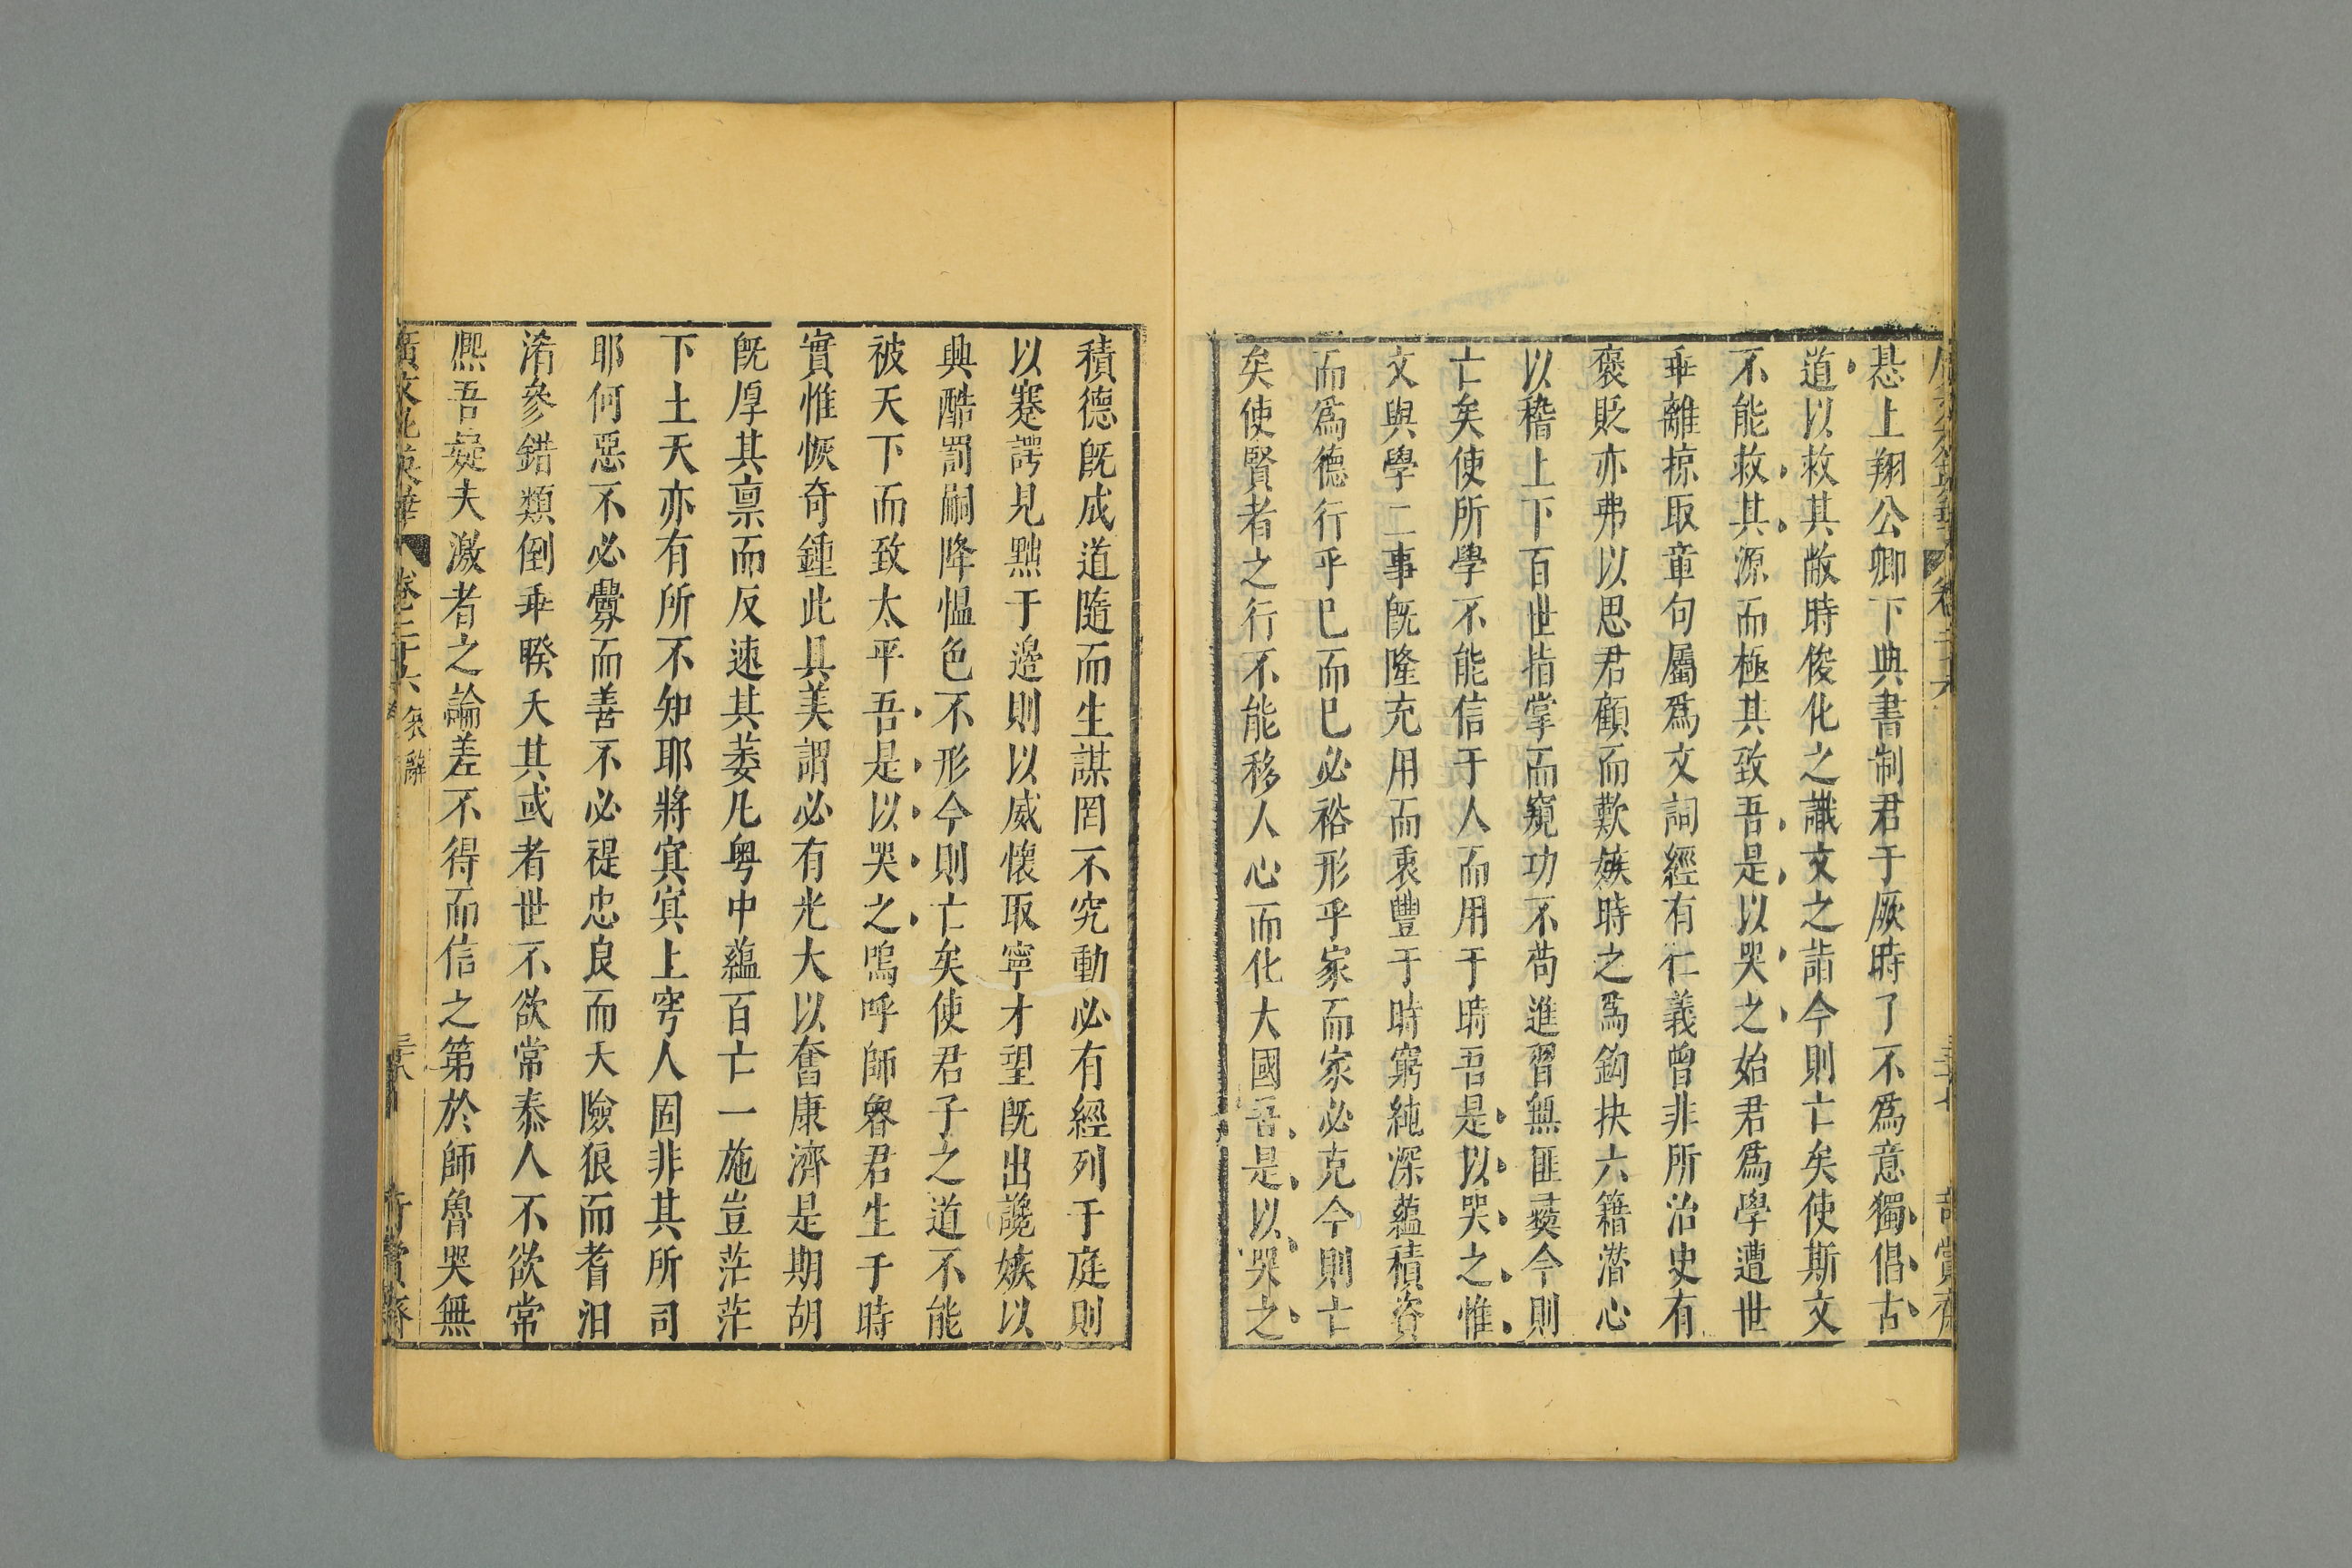 惎上翔公卿下典書制君于厥時了不爲意獨倡古
道以救其敝時俊化之識文之詣今則亡矣使斯文
不能救其源而極其致吾是以哭之始君爲學遭世
乖離掠取章句屬爲文詞經有仁義曾非所治史有
褒貶亦弗以思君顧而歎嫉時之爲鈎抉六籍潜心
以稽上下百世指掌而窺功不茍進習無匪彛今則
亡矣使所學不能信于人而用于時吾是以哭之惟
文與學二事旣隆充用而衷豐于時窮純深蘊積資
而爲德行乎巳而巳必裕形乎家而家必克今則亡
矣使賢者之行不能移人心而化大國吾是以哭之
積德旣成道隨而生謀罔不究動必有經列于庭則
以蹇諤見黜于邊則以威懷取寧才望旣出讒嫉以
興酷罰嗣降慍色不形今則亡矣使君子之道不能
被天下而致太平吾是以哭之嗚呼師魯君生于時
實惟恢奇鍾此具美謂必有光大以奮康濟是期胡
旣厚其禀而反速其萎凡粤中蘊百亡一施豈茫茫
下土天亦有所不知耶將冥冥上穹人固非其所司
耶何惡不必釁而善不必禔忠良而夭險狠而耆汨
淆參錯類倒乖暌天其或者世不欲常泰人不欲常
熈吾疑夫激者之論差不得而信之第於師魯哭無
廣文苑英華 卷二十六 哀辭 三十八 奇賞齋